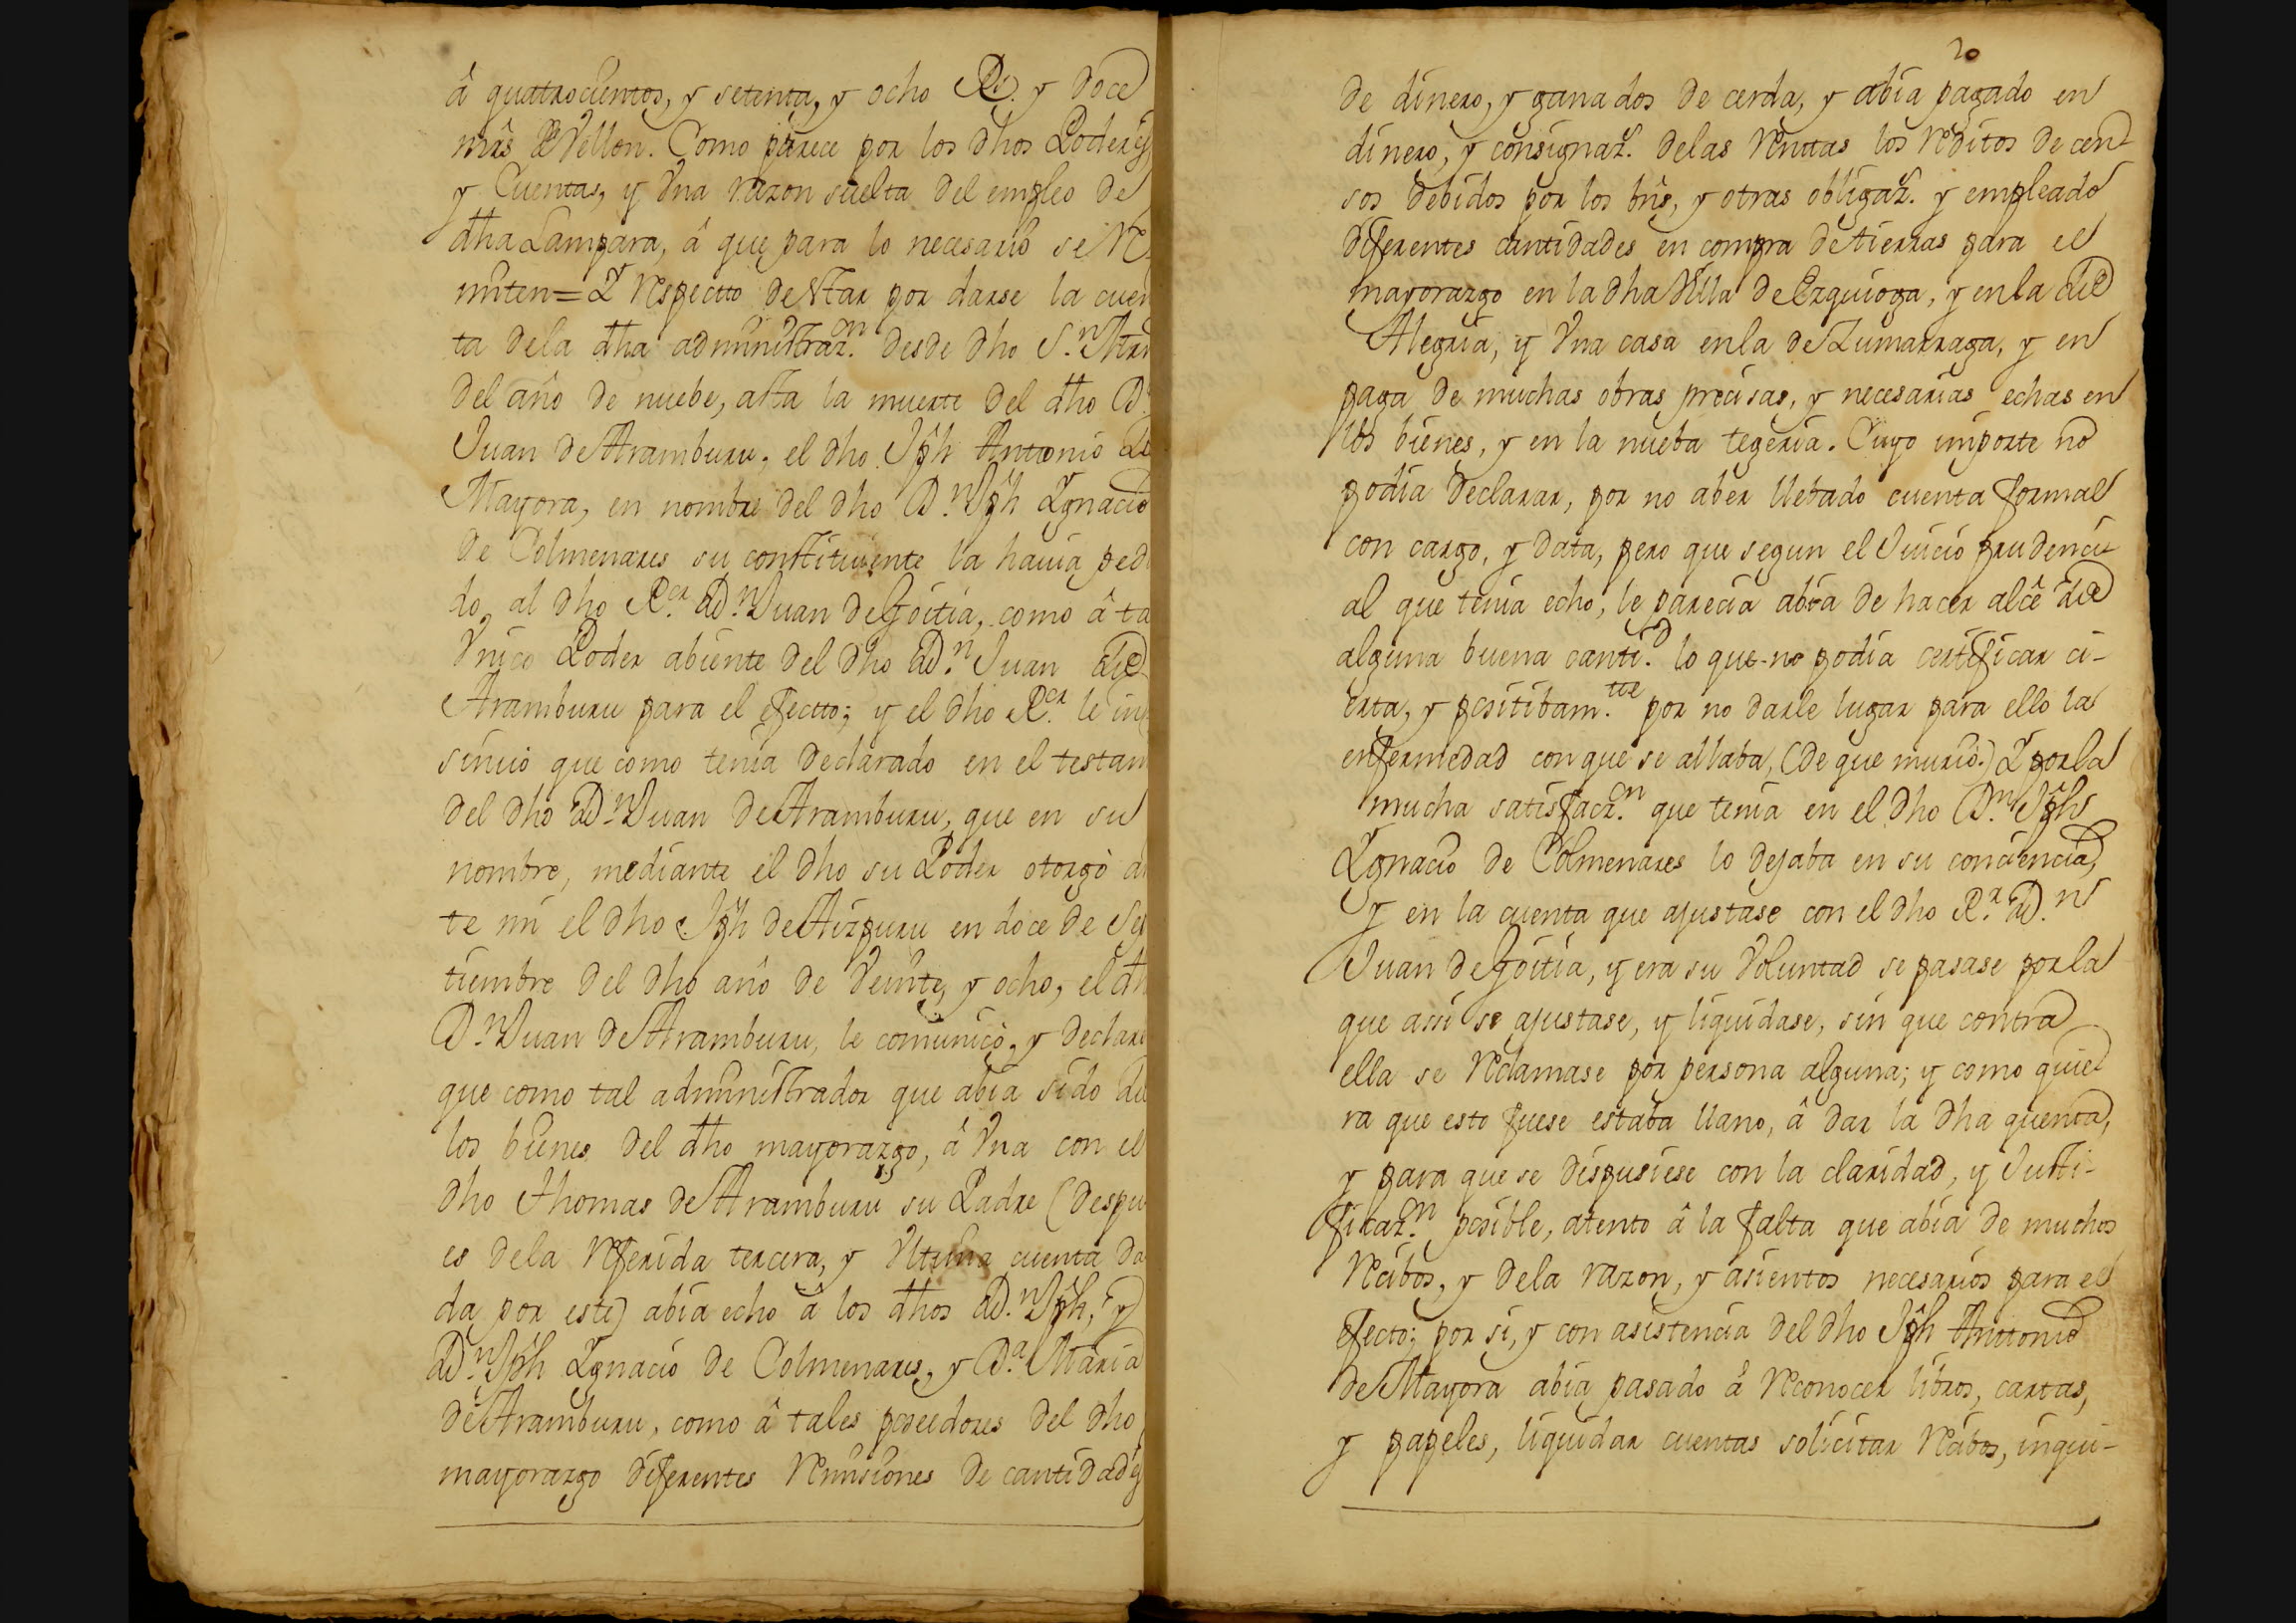 â quatrocientos, y setenta, y ocho Rs. y doce
mrs de Vellon. Como parece por los dhos Poderes,
y Cuentas, y Vna razon suelta del empleo de
dha Lampara, â que para lo necesario se Re
miten = Y Respectto de Star por darse la cuen
ta dela dha administraz.on desde dho S.n Mar
del año de nuebe, asta la muerte del dho D.n
Juan de Aramburu, el dho Jph Antonio de
Mayora, en nombre del dho D.n Jph Ygnacio
de Colmenares su constituiente la hauia pedi
do, al dho R.or D.n Juan de Goitia, como â ta
Vnico Poder abiente del dho D.n Juan de
Aramburu para el efectto; y el dho R.or le in
sinuó que como tenia declarado en el testam
del dho D.n Juan de Aramburu, que en su
nombre, mediante el dho su Poder otorgò an
te mi el dho Jph de Aizpuru en doce de Sep
tiembre del dho año de Veinte, y ocho, el dh
D.n Juan de Aramburu, le comunicò, y declarò
que como tal administrador que abia sido de
los bienes del dho mayorazgo, â Vna con el
dho Thomas de Aramburu su Padre (despu
es dela Referida tercera, y Vltima cuenta da
da por este) abia echo â los dhos D.n Jph, y
D.n Jph Ygnacio de Colmenares, y D.a Maria
de Aramburu, como â tales poseedores del dho
mayorazgo diferentes Remisiones de cantidades
20
de dinero, y ganados de cerda, y abia pagado en
dinero, y consignaz. delas Renttas los Reditos de cen
sos debidos por los bns, y otras obligaz. y empleado
diferentes cantidades en compra de tierras para el
mayorazgo en la dha Villa de Ezquioga, y en la de
Alegria, y Vna casa en la de Zumarraga, y en
paga de muchas obras precisas, y necesarias echas en
los bienes, y en la nueba tegeria. Cuyo importe no
podia declarar, por no aber llebado cuenta formal
con cargo, y data, pero que segun el Juicio prudenci
al que tenia echo, le parecia abia de hacer alcê de
alguna buena canti.d lo que no podia certificar ci-
erta, y positibam.tte por no darle lugar para ello la
enfermedad con que se allaba, (de que murió.) Y por la
mucha satisfacz.on que tenia en el dho D.n Jph
Ygnacio de Colmenares lo dejaba en su conciencia,
y en la cuenta que ajustase con el dho R.r D.n
Juan de Goitia, y era su Voluntad se pasase por la
que assi se ajustase, y liquidase, sin que contra
ella se Reclamase por persona alguna; y como quie
ra que esto fuese estaba llano, â dar la dha quenta,
y para que se dispusiese con la claridad, y Justi-
ficaz.n posible, atento â la falta que abia de muchos
Recibos, y dela razon, y asientos necesarios para el
efecto; por si, y con asistencia del dho Jph Anttonio
de Mayora abia pasado â Reconocer libros, cartas,
y papeles, liquidar cuentas solicitar Recibos, inqui-